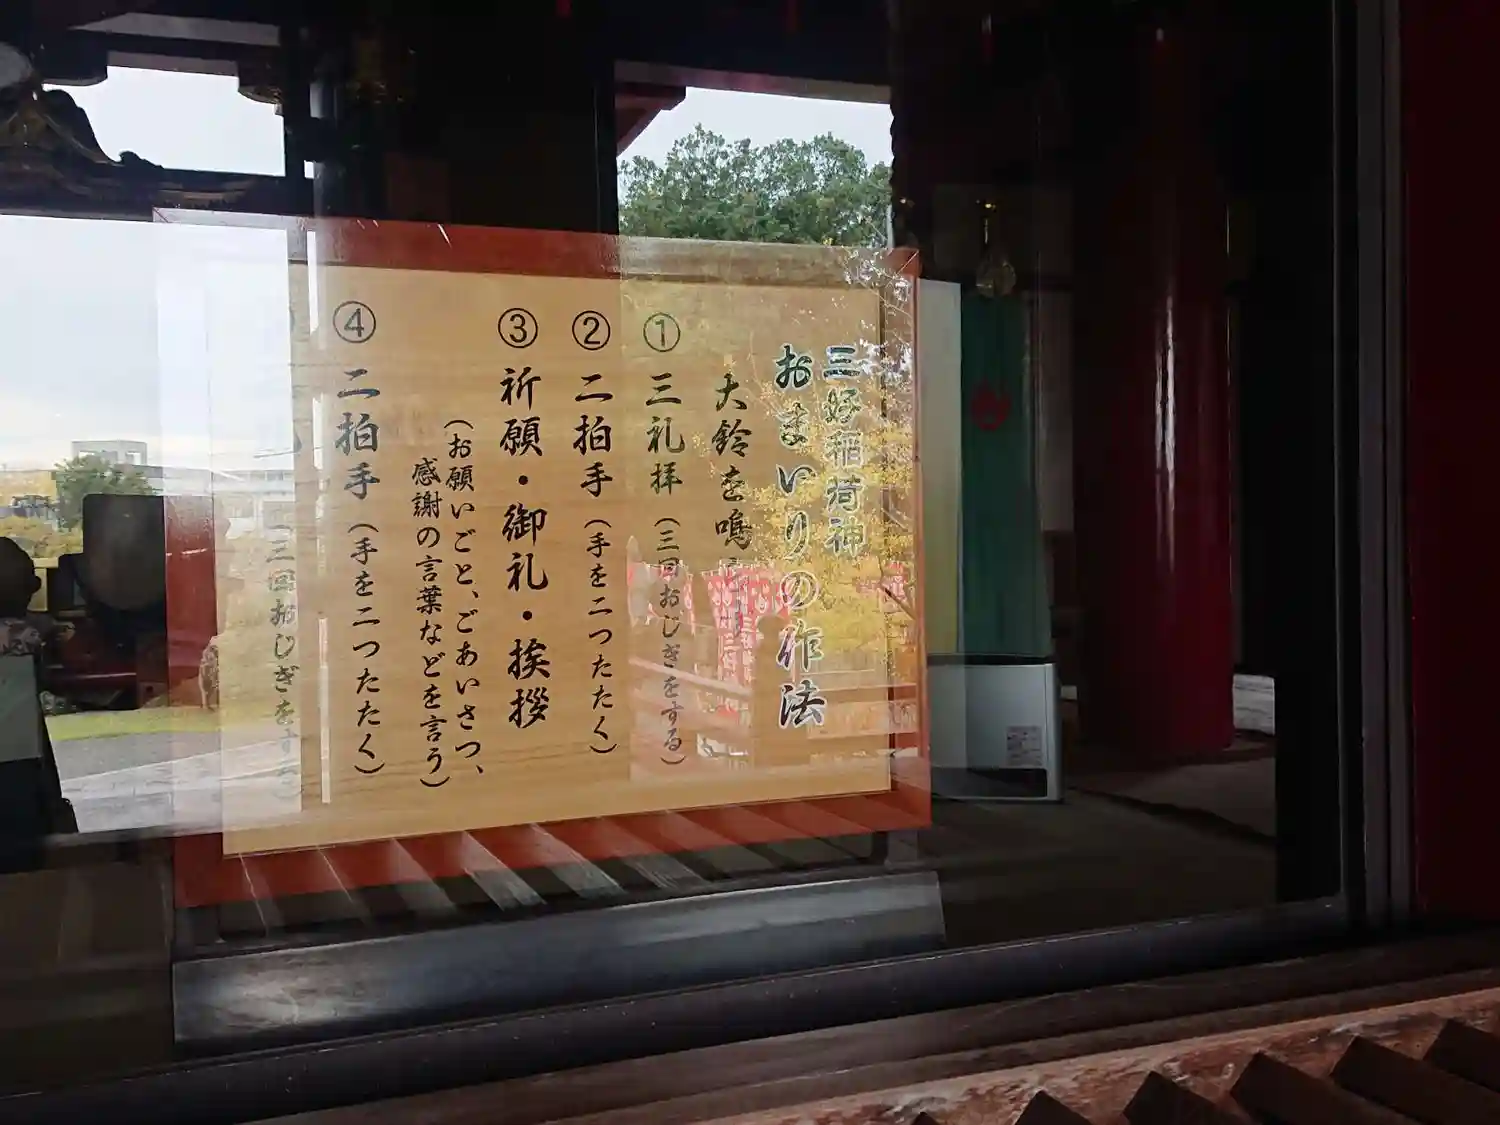 三好稲荷神
おまいりの作法
大鈴を鳴
① 三礼拝（三回おじぎをする）
② 二拍手（手を二つたたく）
③ 祈願・御礼・挨拶
（お願いごと、ごあいさつ、
感謝の言葉などを言う）
④ 二拍手（手を二つたたく）
三回おじぎをする）